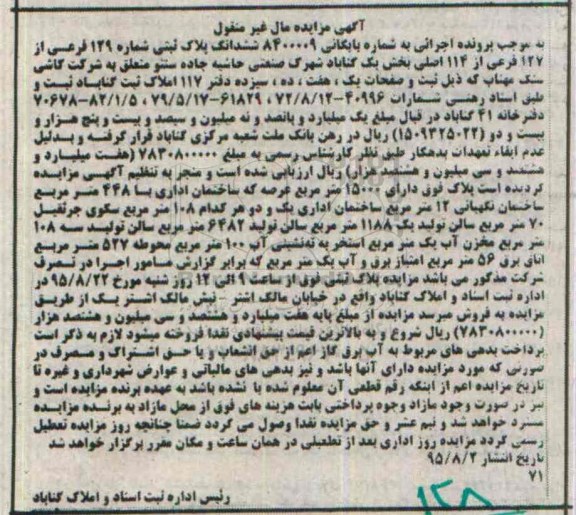 آگهی مزایده مال غیر منقول
به موجب پرونده اجرائی به شماره بایگانی ۸۴۰۰۰۰۹ ششدانگ پلاک ثبتی شماره ۱۲۹ فرعی از
۱۲۷ فرعی از ۱۱۴ اصلی بخش یک گناباد شهرک صنعتی حاشیه جاده سنتو متعلق به شرکت کاشی
سنگ مهتاب که ذیل ثبت و صفحات یک ، هفت ، ده ، سیزده دفتر ۱۱۷ املاک ثبت گناباد ثبت و
طبق اسناد رهنی شمارات ۴۰۹۹۶-۷۲/۸/۱۲ ، ۶۱۸۲۹-۷۹/۵/۱۷ ، ۷۰۶۷۸-۸۲/۱/۵
دفترخانه ۴۱ گناباد در قبال مبلغ یک میلیارد و پانصد و نه میلیون و سیصد و بیست و پنج هزار و
بیست و دو (۱۵۰۹۳۲۵۰۲۲) ریال در رهن بانک ملت شعبه مرکزی گناباد قرار گرفته و بدلیل
عدم ایفاء تعهدات بدهکار طبق نظر کارشناس رسمی به مبلغ ۷۸۳۰۸۰۰۰۰۰ (هفت میلیارد و
هشتصد و سی میلیون و هشتصد هزار) ریال ارزیابی شده است و منجر به تنظیم آگهی مزایده
گردیده است پلاک فوق دارای ۱۵۰۰۰ متر مربع عرصه که ساختمان اداری با ۴۴۸ متر مربع
ساختمان نگهبانی ۱۲ متر مربع ساختمان اداری یک و دو هر کدام ۱۰۸ متر مربع سکوی جرثقیل
۷۰ متر مربع سالن تولید یک ۱۱۸۸ متر مربع سالن تولید ۶۴۸۲ متر مربع سالن تولید سه ۱۰۸
متر مربع مخزن آب یک متر مربع استخر به ته‌نشینی آب ۱۰۰ متر مربع محوطه ۵۲۷ متر مربع
اتاق برق ۵۶ متر مربع امتیاز برق و آب یک متر مربع که برابر گزارش مامور اجرا در تصرف
شرکت مذکور می باشد مزایده پلاک ثبتی فوق از ساعت ۹ الی ۱۲ روز شنبه مورخ ۹۵/۸/۲۲ در
اداره ثبت اسناد و املاک گناباد واقع در خیابان مالک اشتر - نبش مالک اشتر یک از طریق
مزایده به فروش میرسد مزایده از مبلغ پایه هفت میلیارد و هشتصد و سی میلیون و هشتصد هزار
(۷۸۳۰۸۰۰۰۰۰) ریال شروع و به بالاترین قیمت پیشنهادی نقدا فروخته میشود لازم به ذکر است
پرداخت بدهی های مربوط به آب برق گاز اعم از حق انشعاب و یا حق اشتراک و مصرف در
صورتی که مورد مزایده دارای آنها باشد و نیز بدهی های مالیاتی و عوارض شهرداری و غیره تا
تاریخ مزایده اعم از اینکه رقم قطعی آن معلوم شده یا نشده باشد به عهده برنده مزایده است و
نیز در صورت وجود مازاد وجوه پرداختی بابت هزینه های فوق از محل مازاد به برنده مزایده
مسترد خواهد شد و نیم عشر و حق مزایده نقدا وصول می گردد ضمنا چنانچه روز مزایده تعطیل
رسمی گردد مزایده روز اداری بعد از تعطیلی در همان ساعت و مکان مقرر برگزار خواهد شد
تاریخ انتشار ۹۵/۸/۲
۷۱
رئیس اداره ثبت اسناد و املاک گناباد
۱۲۸